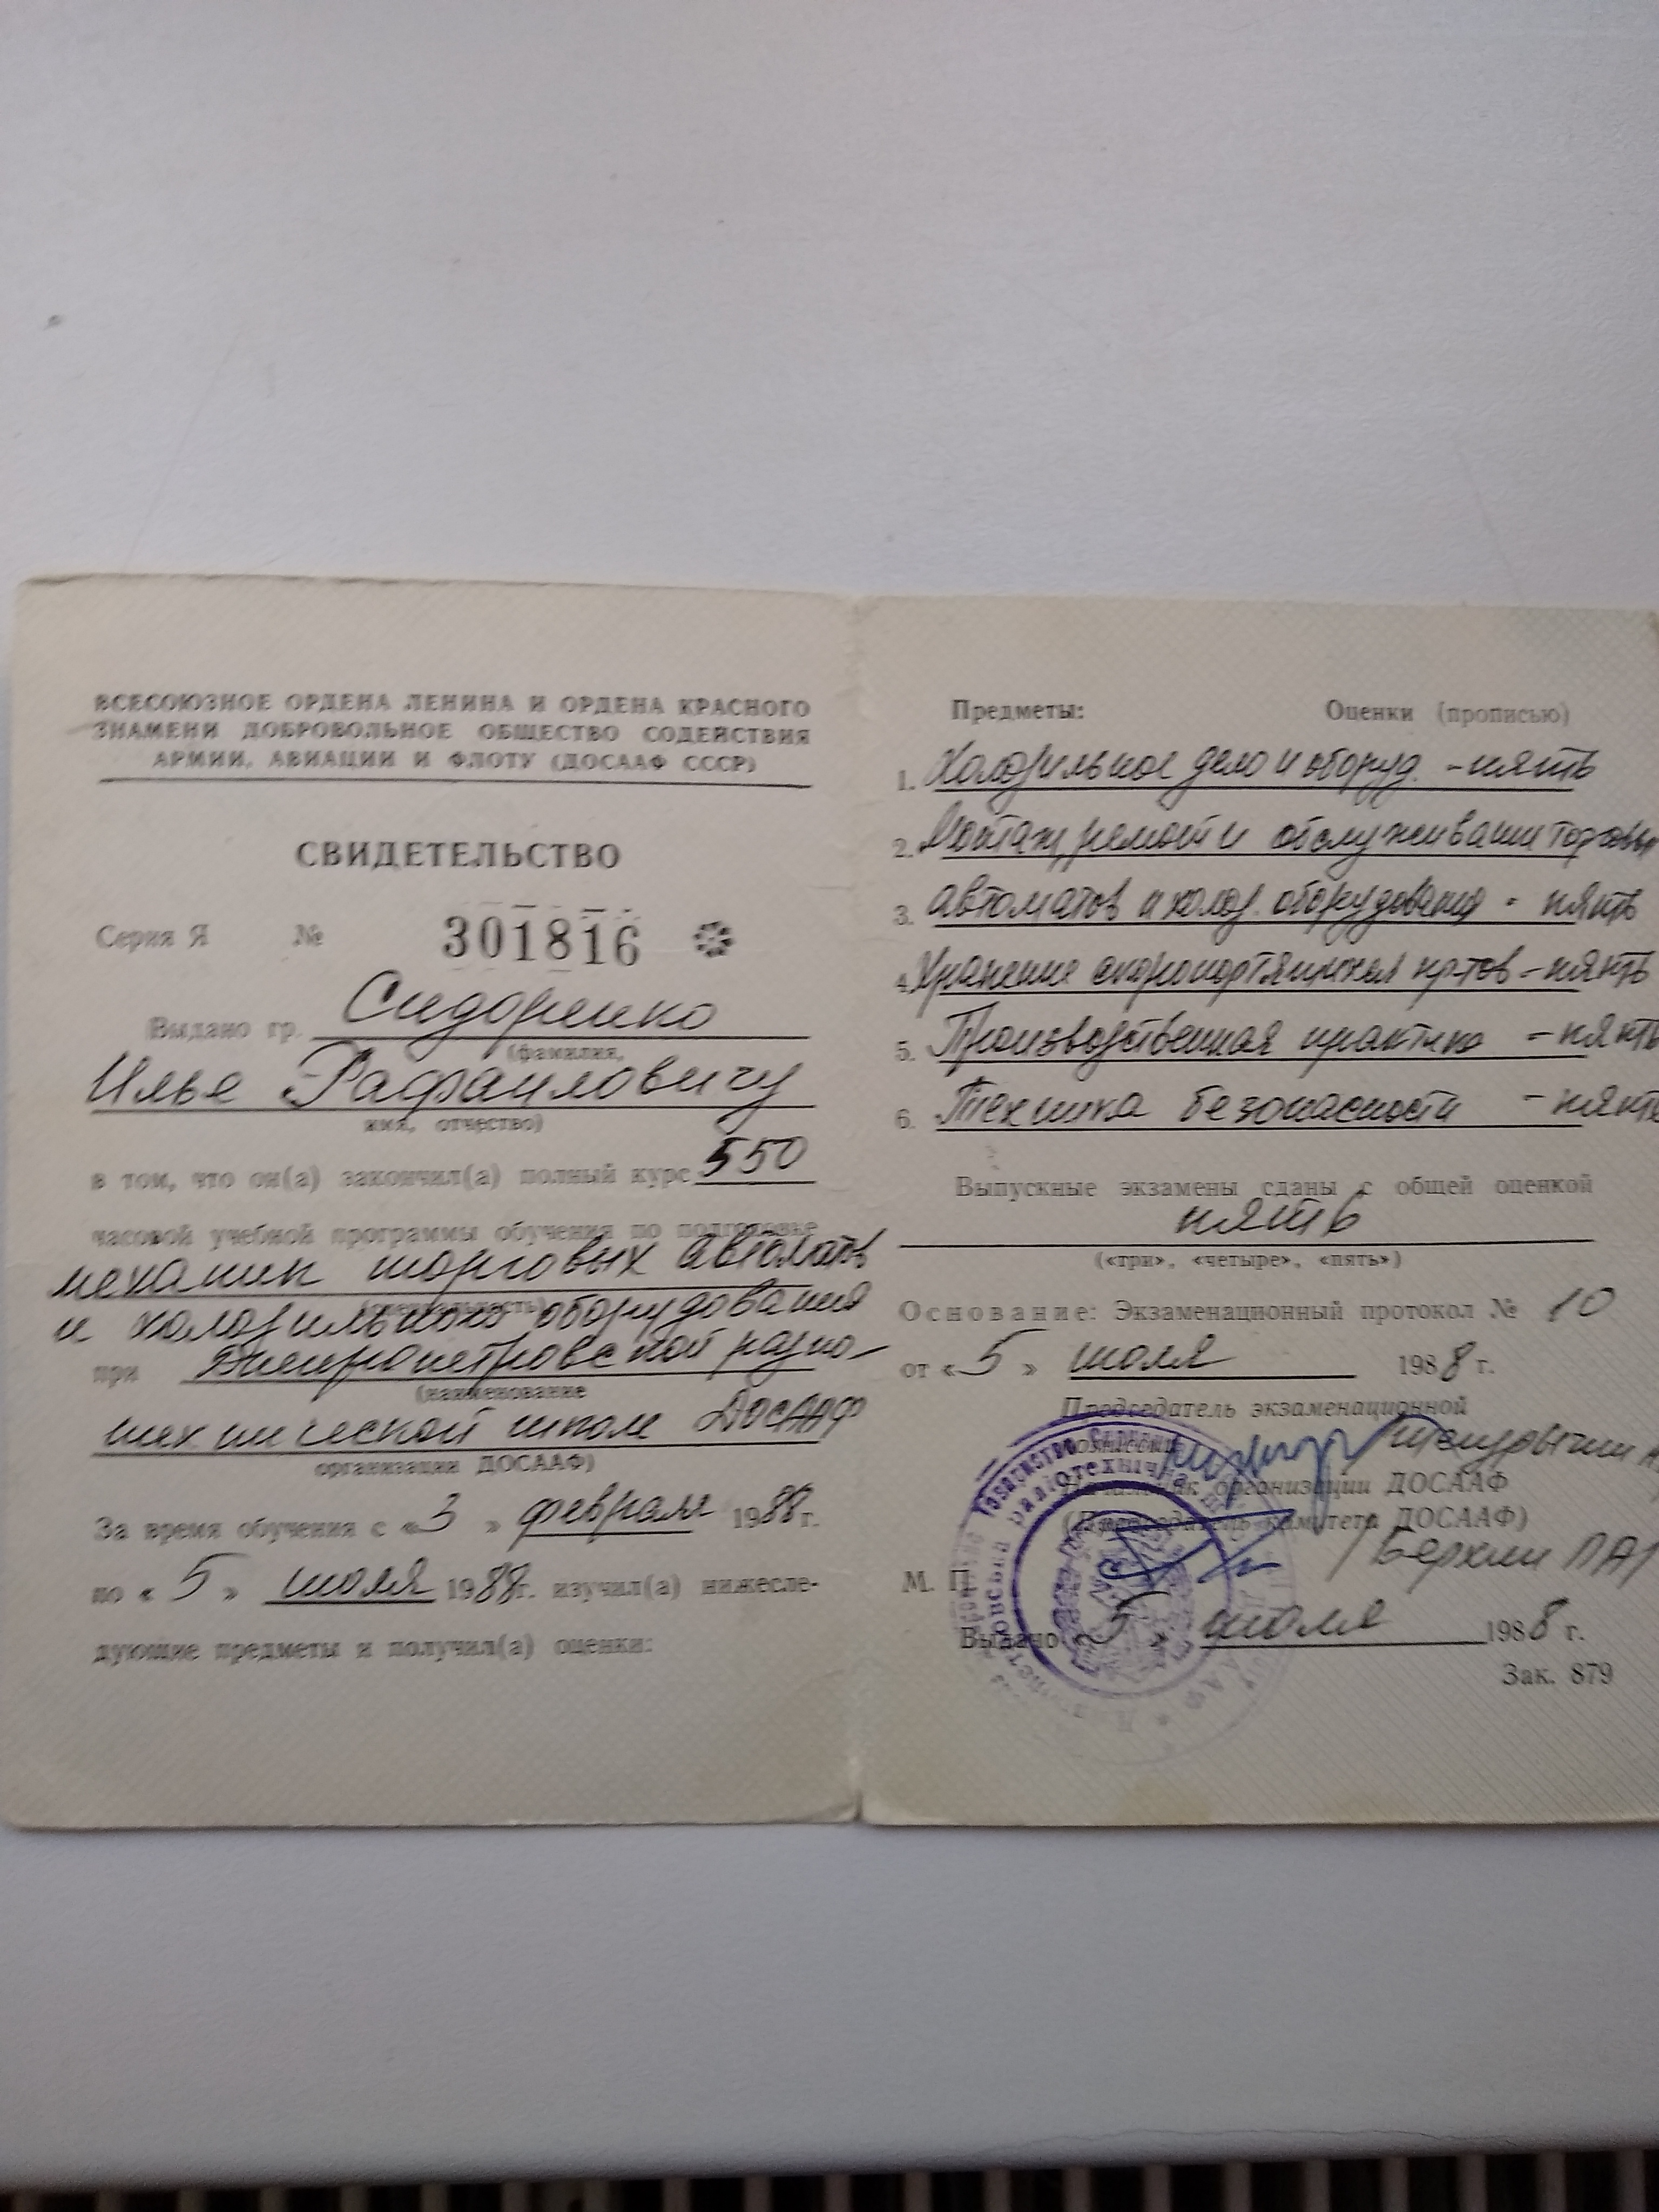 ВСЕСОЮЗНОЕ ОРДЕНА ЛЕНИНА И ОРДЕНА КРАСНОГО
ЗНАМЕНИ ДОБРОВОЛЬНОЕ ОБЩЕСТВО СОДЕЙСТВИЯ
АРМИИ, АВИАЦИИ И ФЛОТУ (ДОСААФ СССР)
СВИДЕТЕЛЬСТВО
Серия Я № 301816
Выдано гр. Сидоренко
(фамилия,
Илье Рафаиловичу
имя, отчество)
в том, что он(а) закончил(а) полный курс 550
часовой учебной программы обучения по подготовке
механик торговых автоматов
(специальность)
и холодильного оборудования
при Днепропетровской радио-
(наименование
технической школе ДОСААФ
организации ДОСААФ)
За время обучения с «3» февраля 1988г.
по «5» июля 1988г. изучил(а) нижесле-
дующие предметы и получил(а) оценки:
Предметы: Оценки (прописью)
1. Холодильное дело и оборуд. - пять
2. Монтаж, ремонт и обслуживание торговых
3. автоматов и холод. оборудования - пять
4. Хранение скоропортящихся пр-тов - пять
5. Производственная практика - пять
6. Техника безопасности - пять
Выпускные экзамены сданы с общей оценкой
пять
(«три», «четыре», «пять»)
Основание: Экзаменационный протокол № 10
от «5» июля 1988 г.
Председатель экзаменационной
комиссии
Начальник организации ДОСААФ
(Председатель комитета ДОСААФ)
М. П.
Выдано «5» июля 1988 г.
Зак. 879